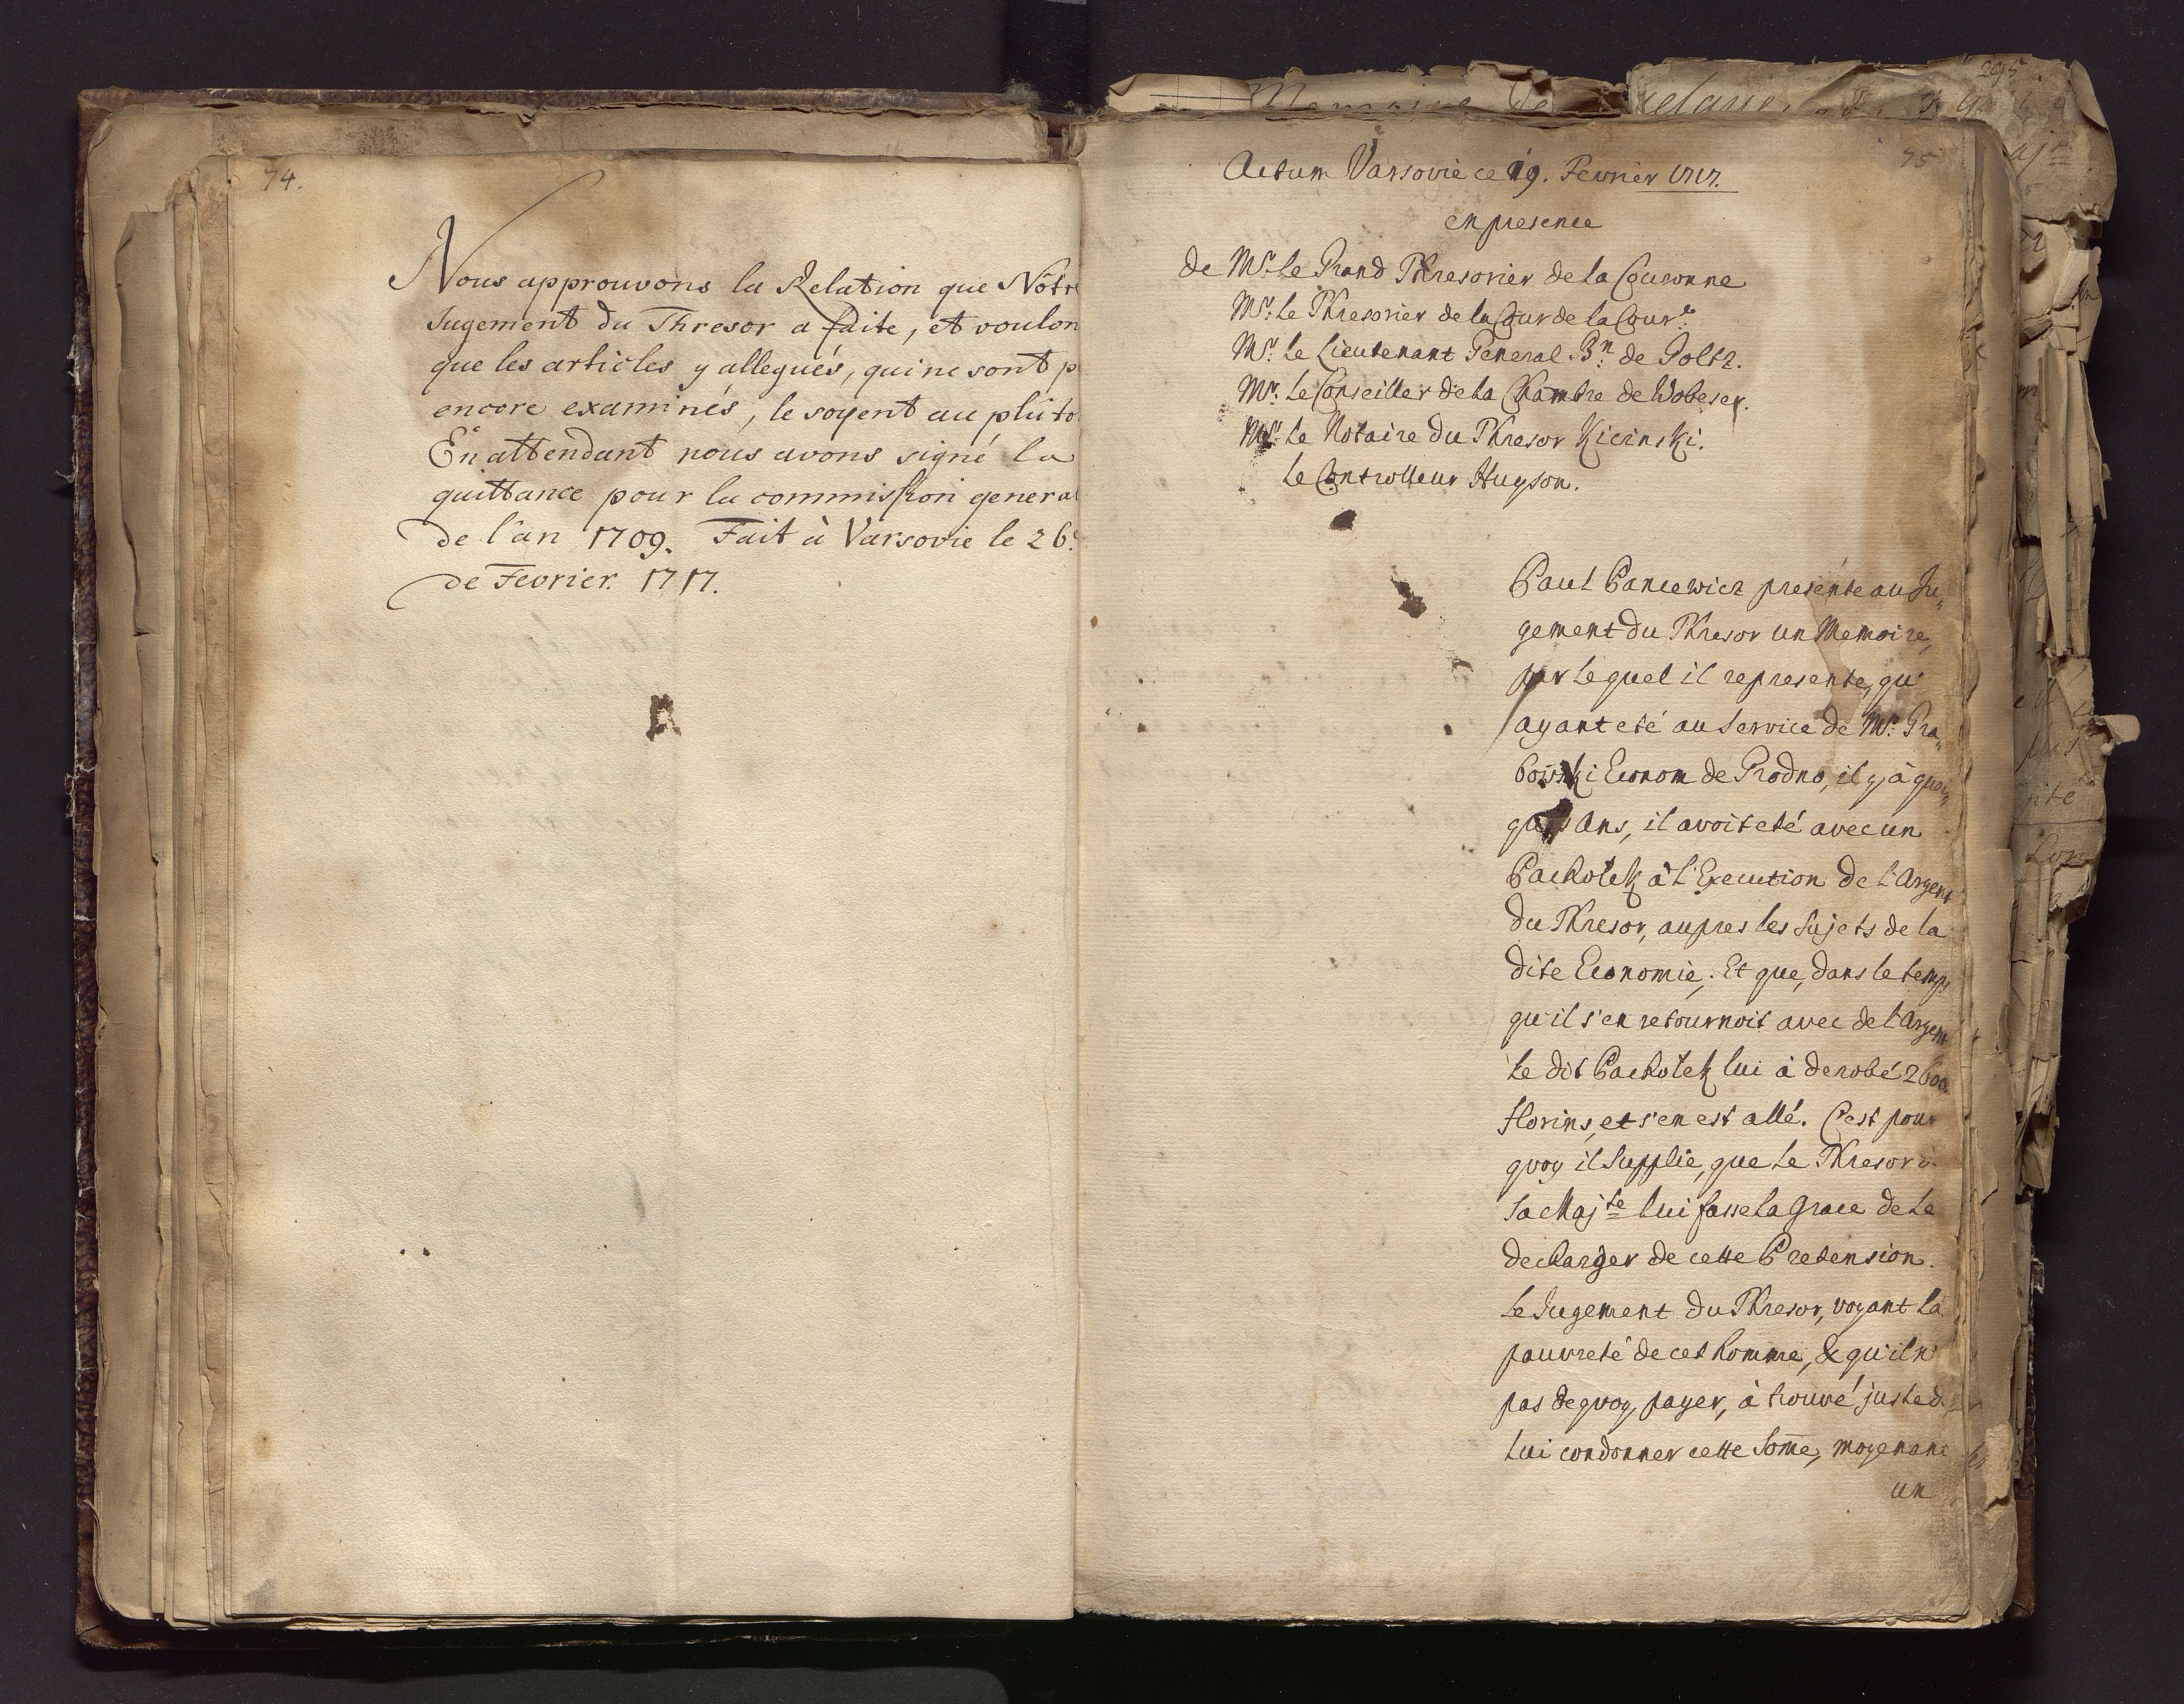 74.
Nous approuvons la Relation que Nôtre
Jugement du Thresor a faite, et voulon
que les articles y allegués, qui ne sont p
encore examinés, le soyent au plûto
En attendant nous avons signé la
quittance pour la commission general
de l'an 1709. Fait à Varsovie le 26.e
de Fevrier. 1717.
295
Memoire de
75
Actum Varsovie ce 19. Fevrier 1717.
en presence
de Mr. le Grand Thresorier de la Couronne
Mr. le Thresorier de la Cour de la Cour.e
Mr. le Lieutenant General B.n de Goltz.
Mr. le Conseiller de la Chambre de Wobeser.
Mr. le Notaire du Thresor Kicinski.
le Controlleur Huyson.
Paul Pancewicz presente au Ju„
gement du Thresor un Memoire,
par lequel il represente, qu'
ayant eté au Service de Mr. Gra„
bowski Econom de Grodno, il y à quel„
ques Ans, il avoit eté avec un
Pacholek à l'Execution de l'Argent
du Thresor, aupres les Sujets de la
dite Economie; Et que, dans le temps
qu'il s'en retournoit avec de l'Argent
le dit Pacholek lui à derobé 2600.
florins, et s'en est allé. C'est pour
quoy il Supplie, que le Thresor d
Sa Maj.te lui fasse la Grace de le
decharger de cette Pretension.
Le Jugement du Thresor, voyant la
pauvreté de cet homme, & qu'il n'
pas de quoy payer, à trouvé juste d
lui condonner cette Som̄e, moyenant
un